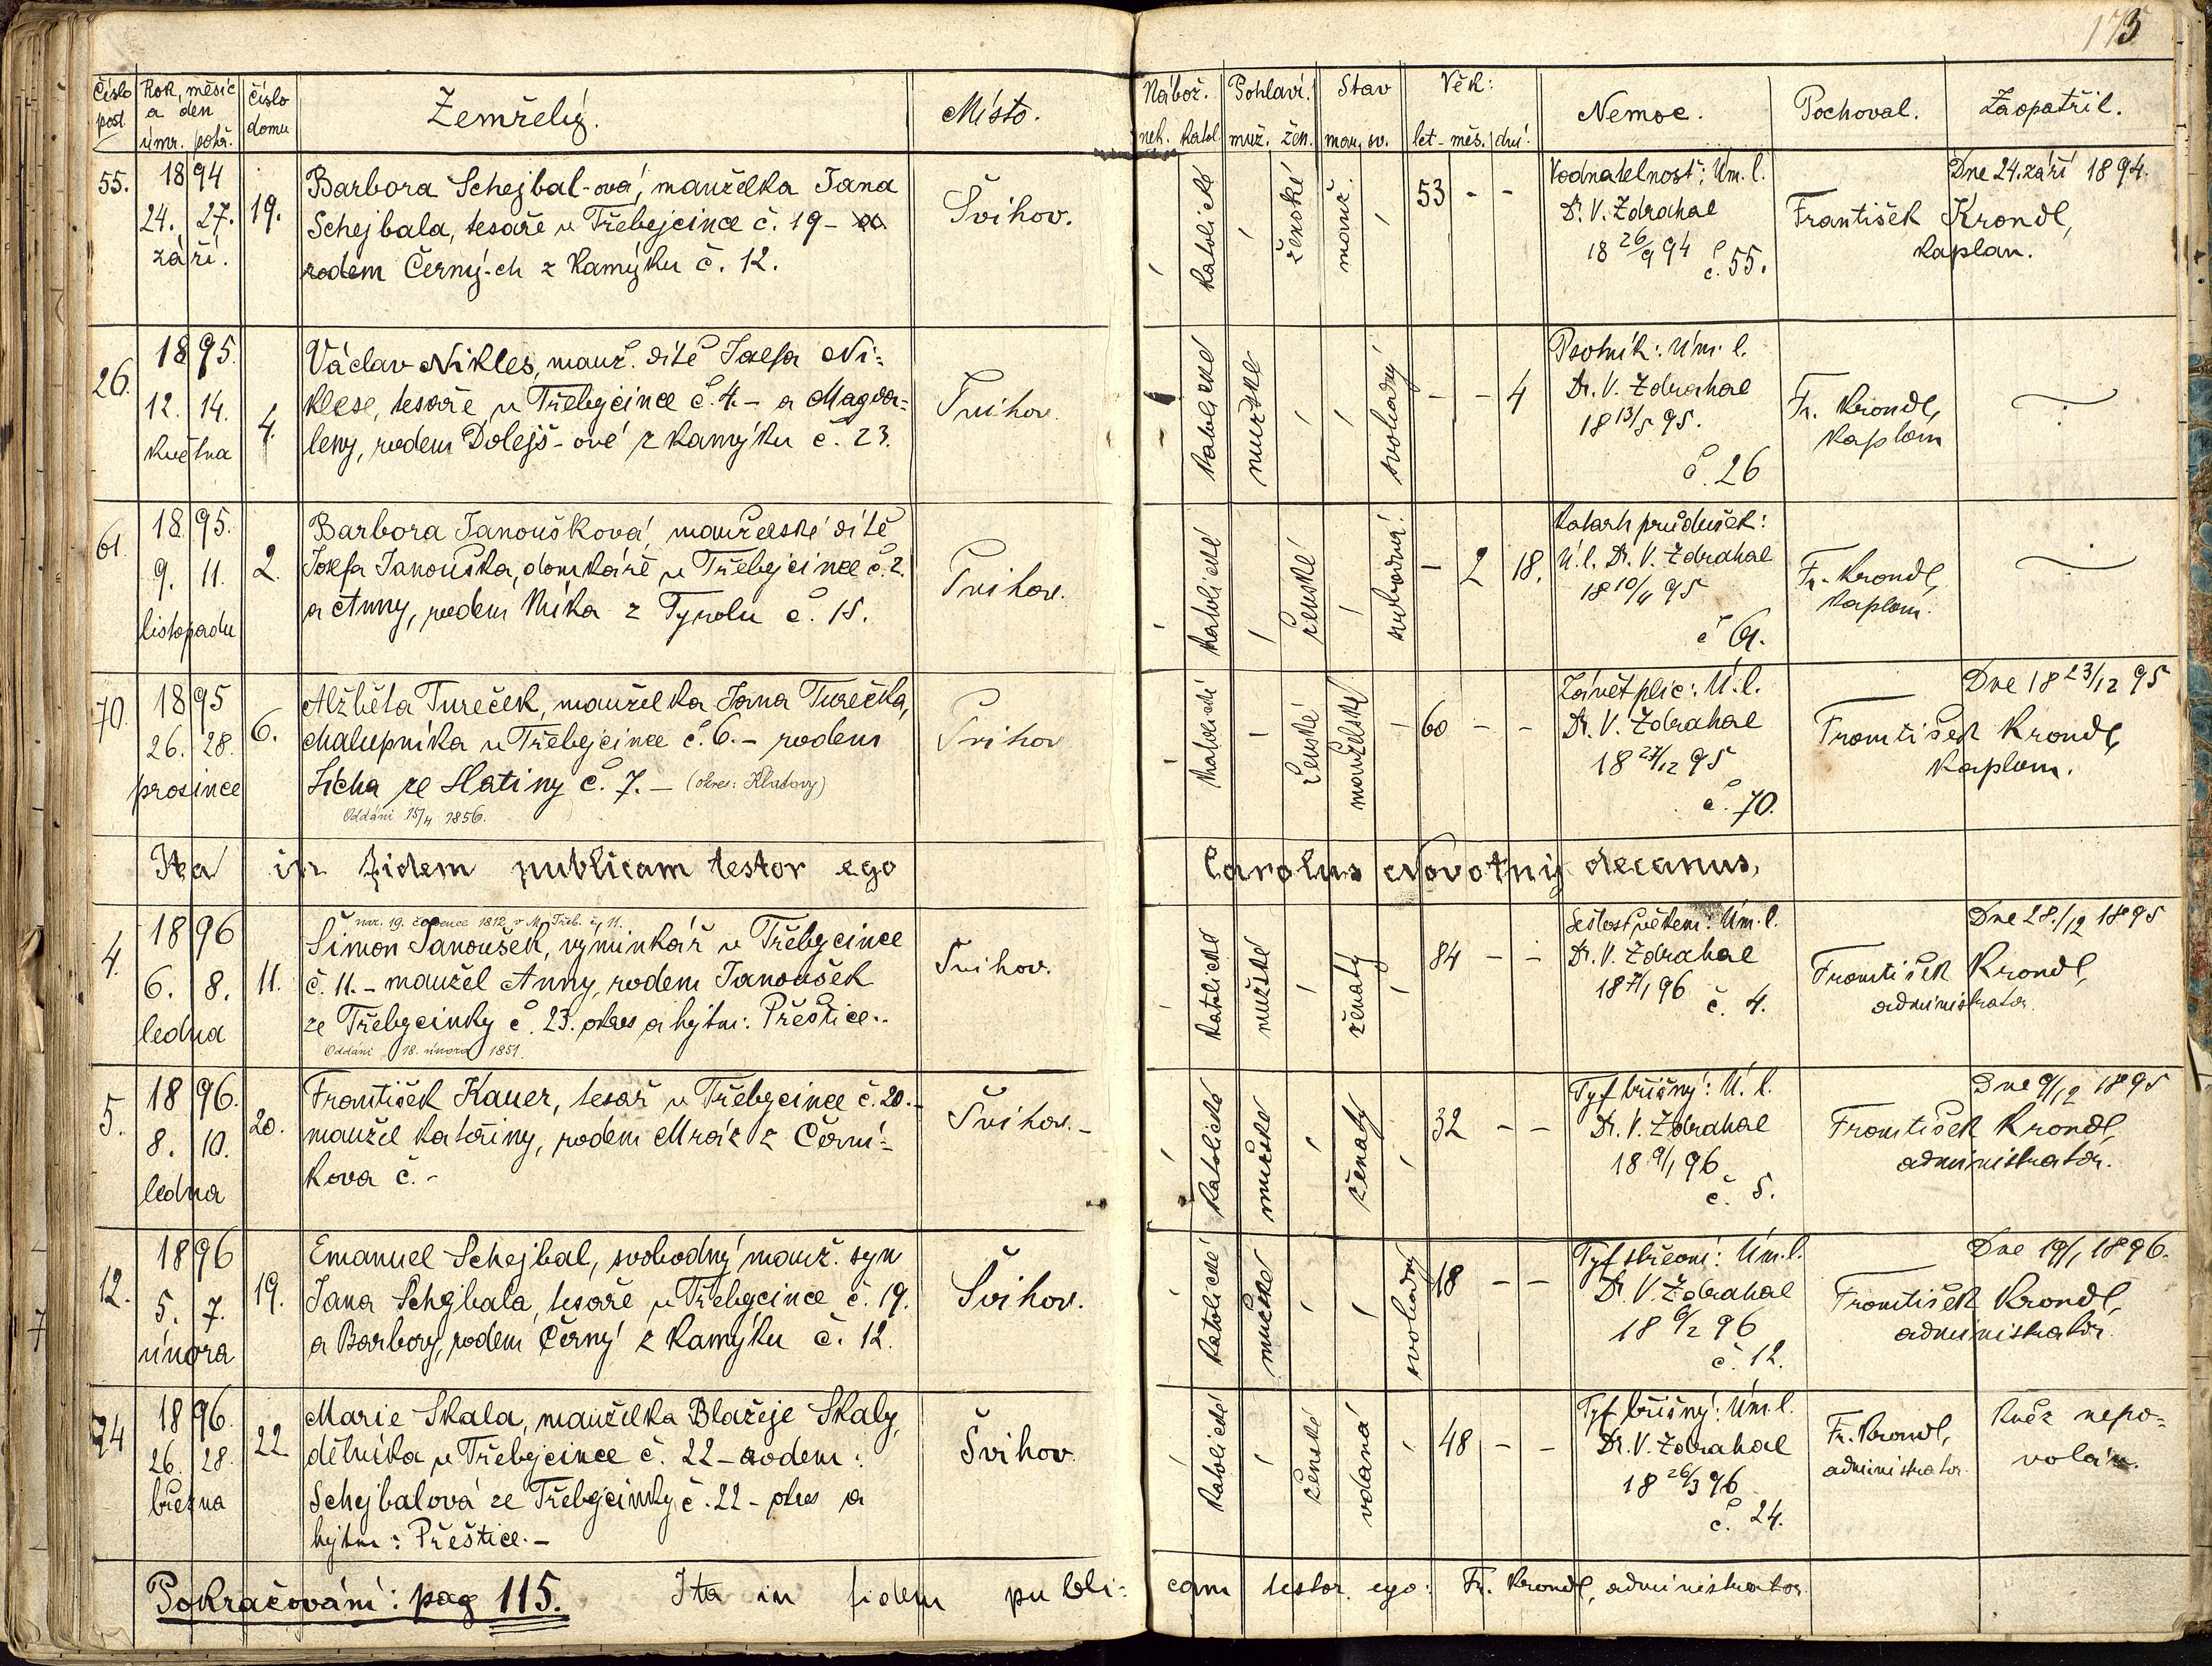 173
Číslo post. Rok, měsíc a den úmr. pohř. číslo domu Zemřelý. Místo. Nábož. nek. katol. Pohlaví. muž. žen. Stav man. sv. Věk: let - měs. dní. Nemoc. Pochoval. Zaopatřil.
55. 1894 24. 27. září. 19.
Barbora Schejbal-ová, manželka Jana
Schejbala, tesaře v Třebejcince č. 19 -
rodem Černý-ch z Kamýku č. 12.
Švihov.
katolické ženské manž. 53 - -
Vodnatelnost: Úm. l.
Dr. V. Zdrahal
18 26/9 94 č. 55.
Dne 24. září 1894.
František Krondl,
kaplan.
26. 1895. 12. 14. května 4.
Václav Nikles, manž. dítě Josefa Ni-
klese, tesaře v Třebejcince č. 4. - a Magda-
leny, rodem Dolejš-ové z Kamýku č. 23.
Švihov.
katolické mužské svobodný - - 4
Psotník: Úm. l.
Dr. V. Zdrahal
18 13/5 95.
č. 26
Fr. Krondl,
kaplan
61. 1895. 9. 11. listopadu 2.
Barbora Janoušková, manželské dítě
Josefa Janouška, domkáře v Třebejcince č. 2.
a Anny, rodem Míka z Tyrolu č. 15.
Švihov.
katolické ženské svobodná - 2 18.
Katarh průdušek:
Ú. l. Dr. V. Zdrahal
18 10/11 95
č. 61.
Fr. Krondl,
kaplan.
70. 1895 26. 28. prosince 6.
Alžběta Tureček, manželka Jana Turečka,
chalupníka v Třebejcince č. 6. - rodem
Lícha ze Slatiny č. 7. - (okres: Klatovy)
Oddáni 15/4 1856.
Švihov
katolické ženské manželská - 60 - -
Zánět plic: Ú. l.
Dr. V. Zdrahal
18 27/12 95
č. 70.
Dne 18 23/12 95
František Krondl,
kaplan.
Ita in fidem publicam testor ego Carolus Novotný decanus,
4. 1896 6. 8. ledna 11.
nar. 19. července 1812 v M. Třeb. čp. 11.
Šimon Janoušek, výminkář v Třebejcince
č. 11. - manžel Anny, rodem Janoušek
ze Třebejcinky č. 23. okres a hejtm: Přeštice.
Oddáni 18. února 1851.
Švihov.
katolické mužské ženatý 84 - -
Sešlost věkem: Úm. l.
Dr. V. Zdrahal
18 7/1 96 č. 4.
Dne 28./12 1895
František Krondl,
administrator.
5. 1896. 8. 10. ledna 20.
František Kauer, tesař v Třebejcince č. 20. -
manžel Kateřiny, rodem Mráz z Černí-
kova č. -
Švihov. -
katolické mužské ženatý 32 - -
Tyf břišný: Ú. l.
Dr. V. Zdrahal
18 9/1 96
č. 5.
Dne 9/12 1895
František Krondl,
administrator.
12. 1896 5. 7. února 19.
Emanuel Schejbal, svobodný manž. syn
Jana Schejbala, tesaře v Třebejcince č. 19.
a Barbory, rodem Černý z Kamýku č. 12.
Švihov.
katolické mužské svobodný 18 - -
Tyf střevní: Úm. l.
Dr. V. Zdrahal
18 6/2 96
č. 12.
Dne 19/1 1896.
František Krondl,
administrator.
24 1896. 26. 28. března 22
Marie Skala, manželka Blažeje Skaly,
dělníka v Třebejcince č. 22 - rodem:
Schejbalová ze Třebejcinky č. 22 - okres a
hejtm: Přeštice. -
Švihov.
katolické ženské vdaná 48 - -
Tyf břišný: Úm. l.
Dr. V. Zdrahal
18 26/3 96
č. 24.
Fr. Krondl,
administrator.
Kněz nepo-
volán.
Pokračování: pag 115. Ita in fidem publi- cam testor ego: Fr. Krondl, administrator.